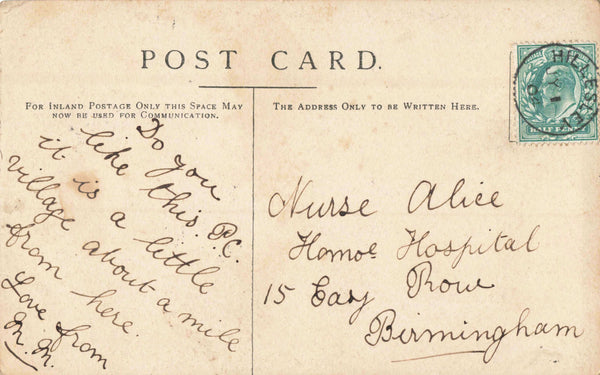 POST CARD.
FOR INLAND POSTAGE ONLY THIS SPACE MAY
NOW BE USED FOR COMMUNICATION.
THE ADDRESS ONLY TO BE WRITTEN HERE.
HILLESLEY
HALF PENNY
Do you
like this P.C.
it is a little
village about a mile
from here.
Love from
M. M.
Nurse Alice
Homoe Hospital
15 Easy Row
Birmingham